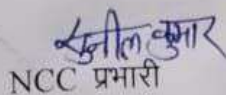 सुनील कुमार
NCC प्रभारी